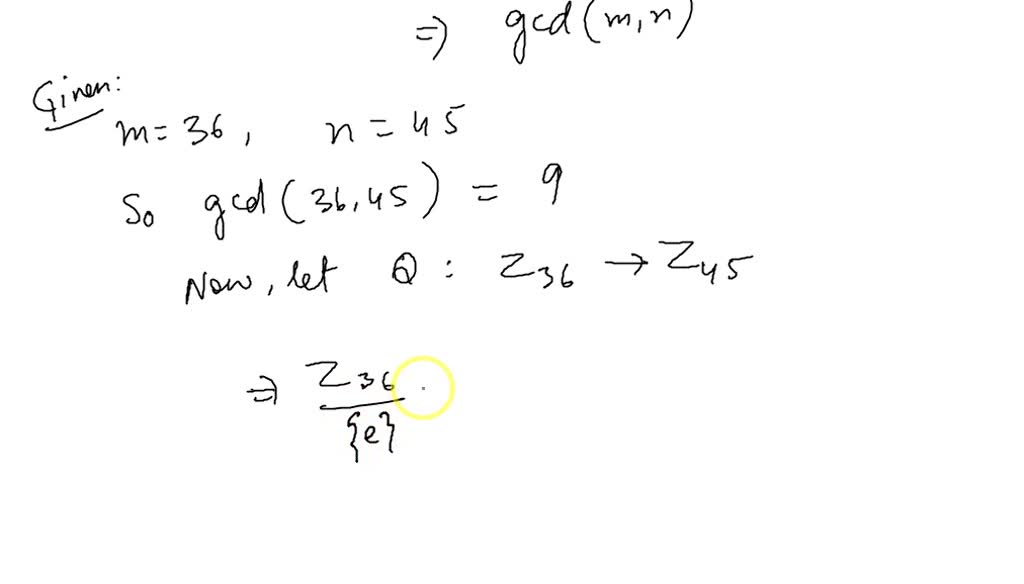 ⇒ gcd(m,n)
Given:
m=36, n=45
So gcd(36,45) = 9
Now, let Q : Z₃₆ → Z₄₅
⇒ Z₃₆
{e}